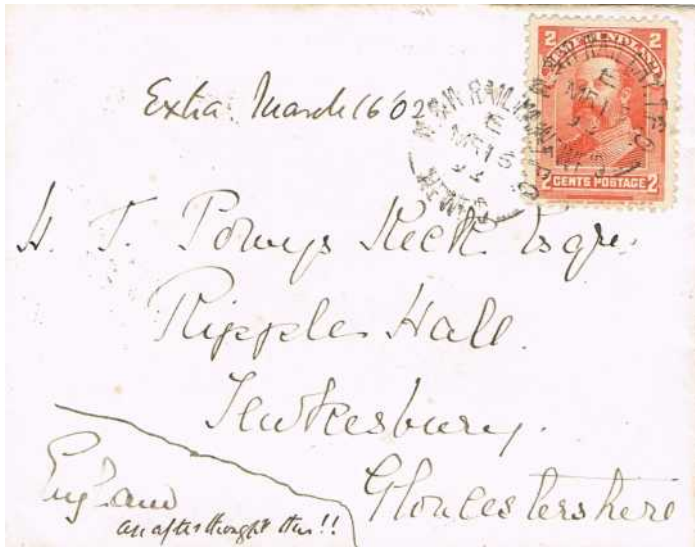 2 NEWFOUNDLAND 2
2 CENTS POSTAGE 2
Extra March 16 02
H. T. Powys Keck Esqre
Ripple Hall.
Tewkesbury.
Gloucestershire
England
an after thought this!!